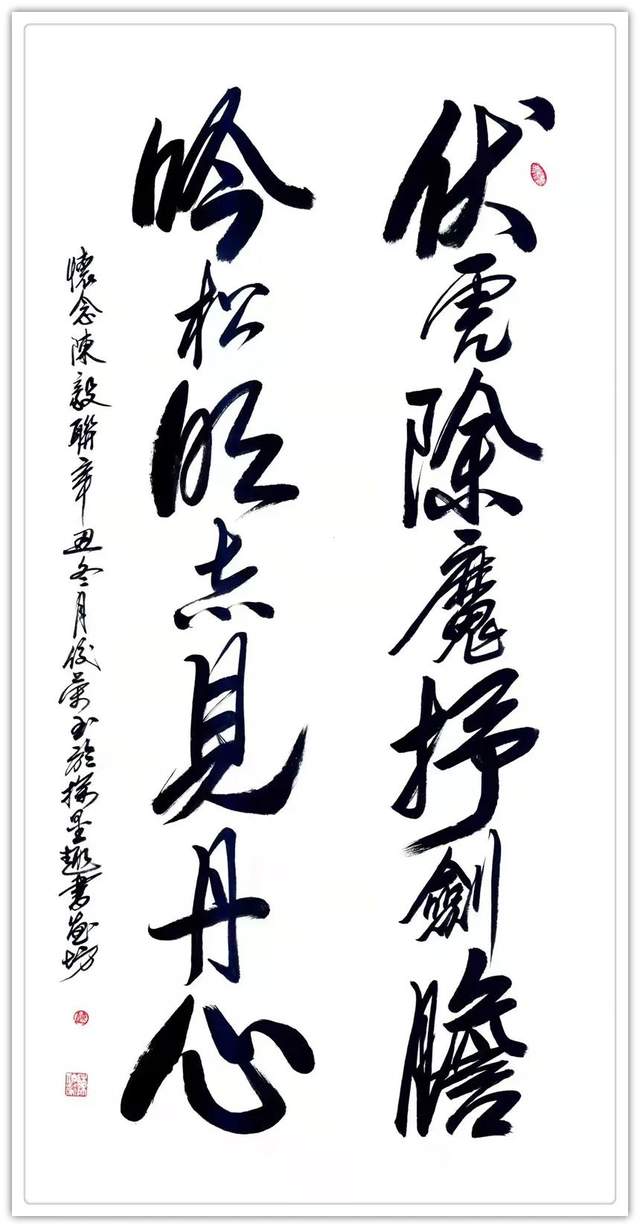 伏虎除魔抒劍膽
吟松明志見丹心
懷念陳毅聯辛丑冬月俊榮書於探墨趣書畫坊